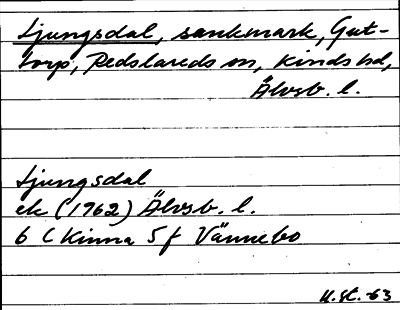 Ljungsdal, sankmark, Gut-
torp, Redslareds sn, Kinds hd,
Älvsb. l.
Ljungsdal
ek (1962) Älvsb. l.
6 C Kinna 5f Vännebo
U.St. -63